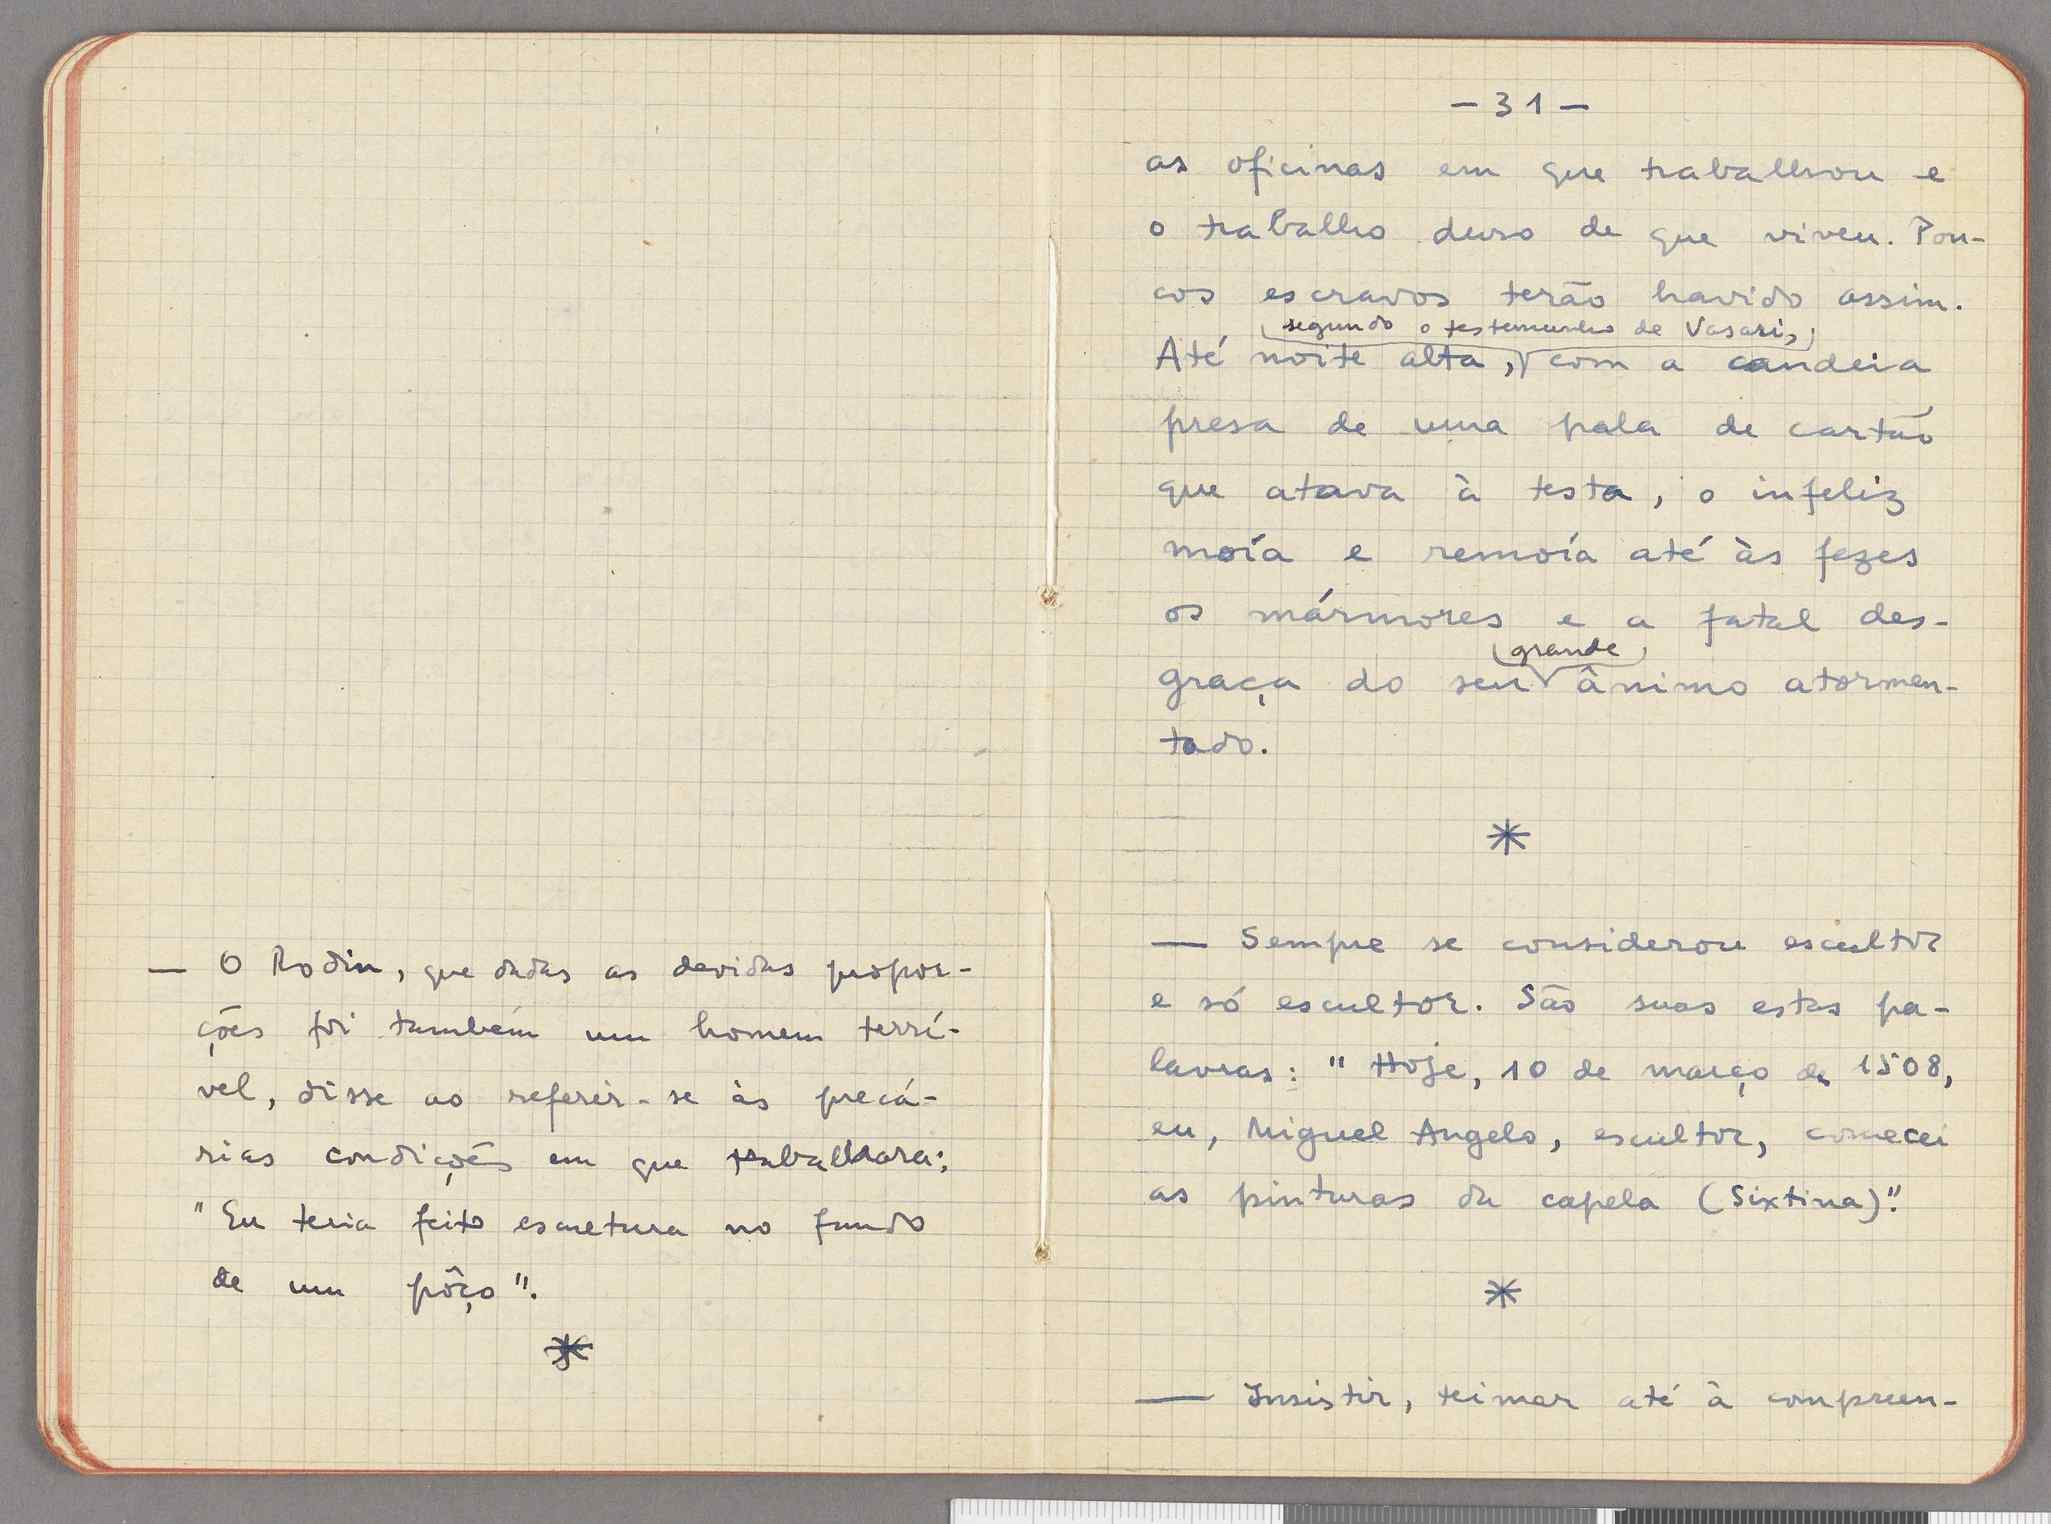 — O Rodin, que dadas as devidas propor-
ções foi também um homem terrí-
vel, disse ao referir-se às precá-
rias condições em que trabalhara:
"Eu teria feito escultura no fundo
de um pôço".
*
— 31 —
as oficinas em que trabalhou e
o trabalho duro de que viveu. Pou-
cos escravos terão havido assim.
segundo o testemunho de Vasari,
Até noite alta, com a candeia
presa de uma pala de cartão
que atava à testa, o infeliz
moía e remoía até às fezes
os mármores e a fatal des-
grande
graça do seu ânimo atormen-
tado.
*
— Sempre se considerou escultor
e só escultor. São suas estas pa-
lavras: "Hoje, 10 de março de 1508,
eu, Miguel Angelo, escultor, comecei
as pinturas da capela (Sixtina)."
*
— Insistir, teimar até à compreen-